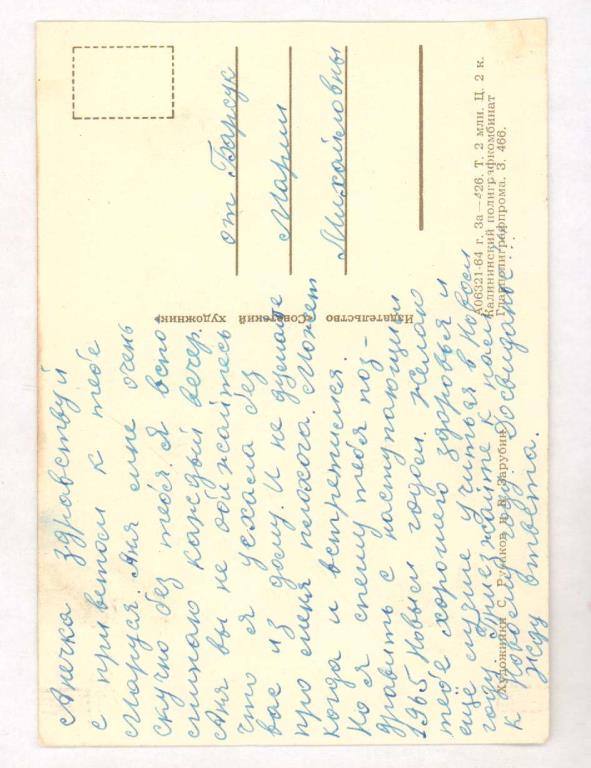 от Барсук
Марии
Михайловны
Анечка здравствуй
с приветом к тебе
Маруся. Аня мне очень
скучно без тебя. я вспо
минаю каждый вечер.
Аня вы не обижайтесь
что я уехала без
вас из дому. И не думайте
про меня плохога. Может
когда и встретимся.
Но я спешу тебя поз-
дравить с наступающим
1965 Новым годом. Желаю
тебе хорошего здоровья и
ещё лучше учиться в Новом
году. Приезжайте к нам
к Досвиданье...
Жду ответа.
Издательство «Советский художник»
Художники С. Русаков и В. Зарубин
А06321-64 г. За—426. Т. 2 млн. Ц. 2 к.
Калининский полиграфкомбинат
Главполиграфпрома. З. 466.